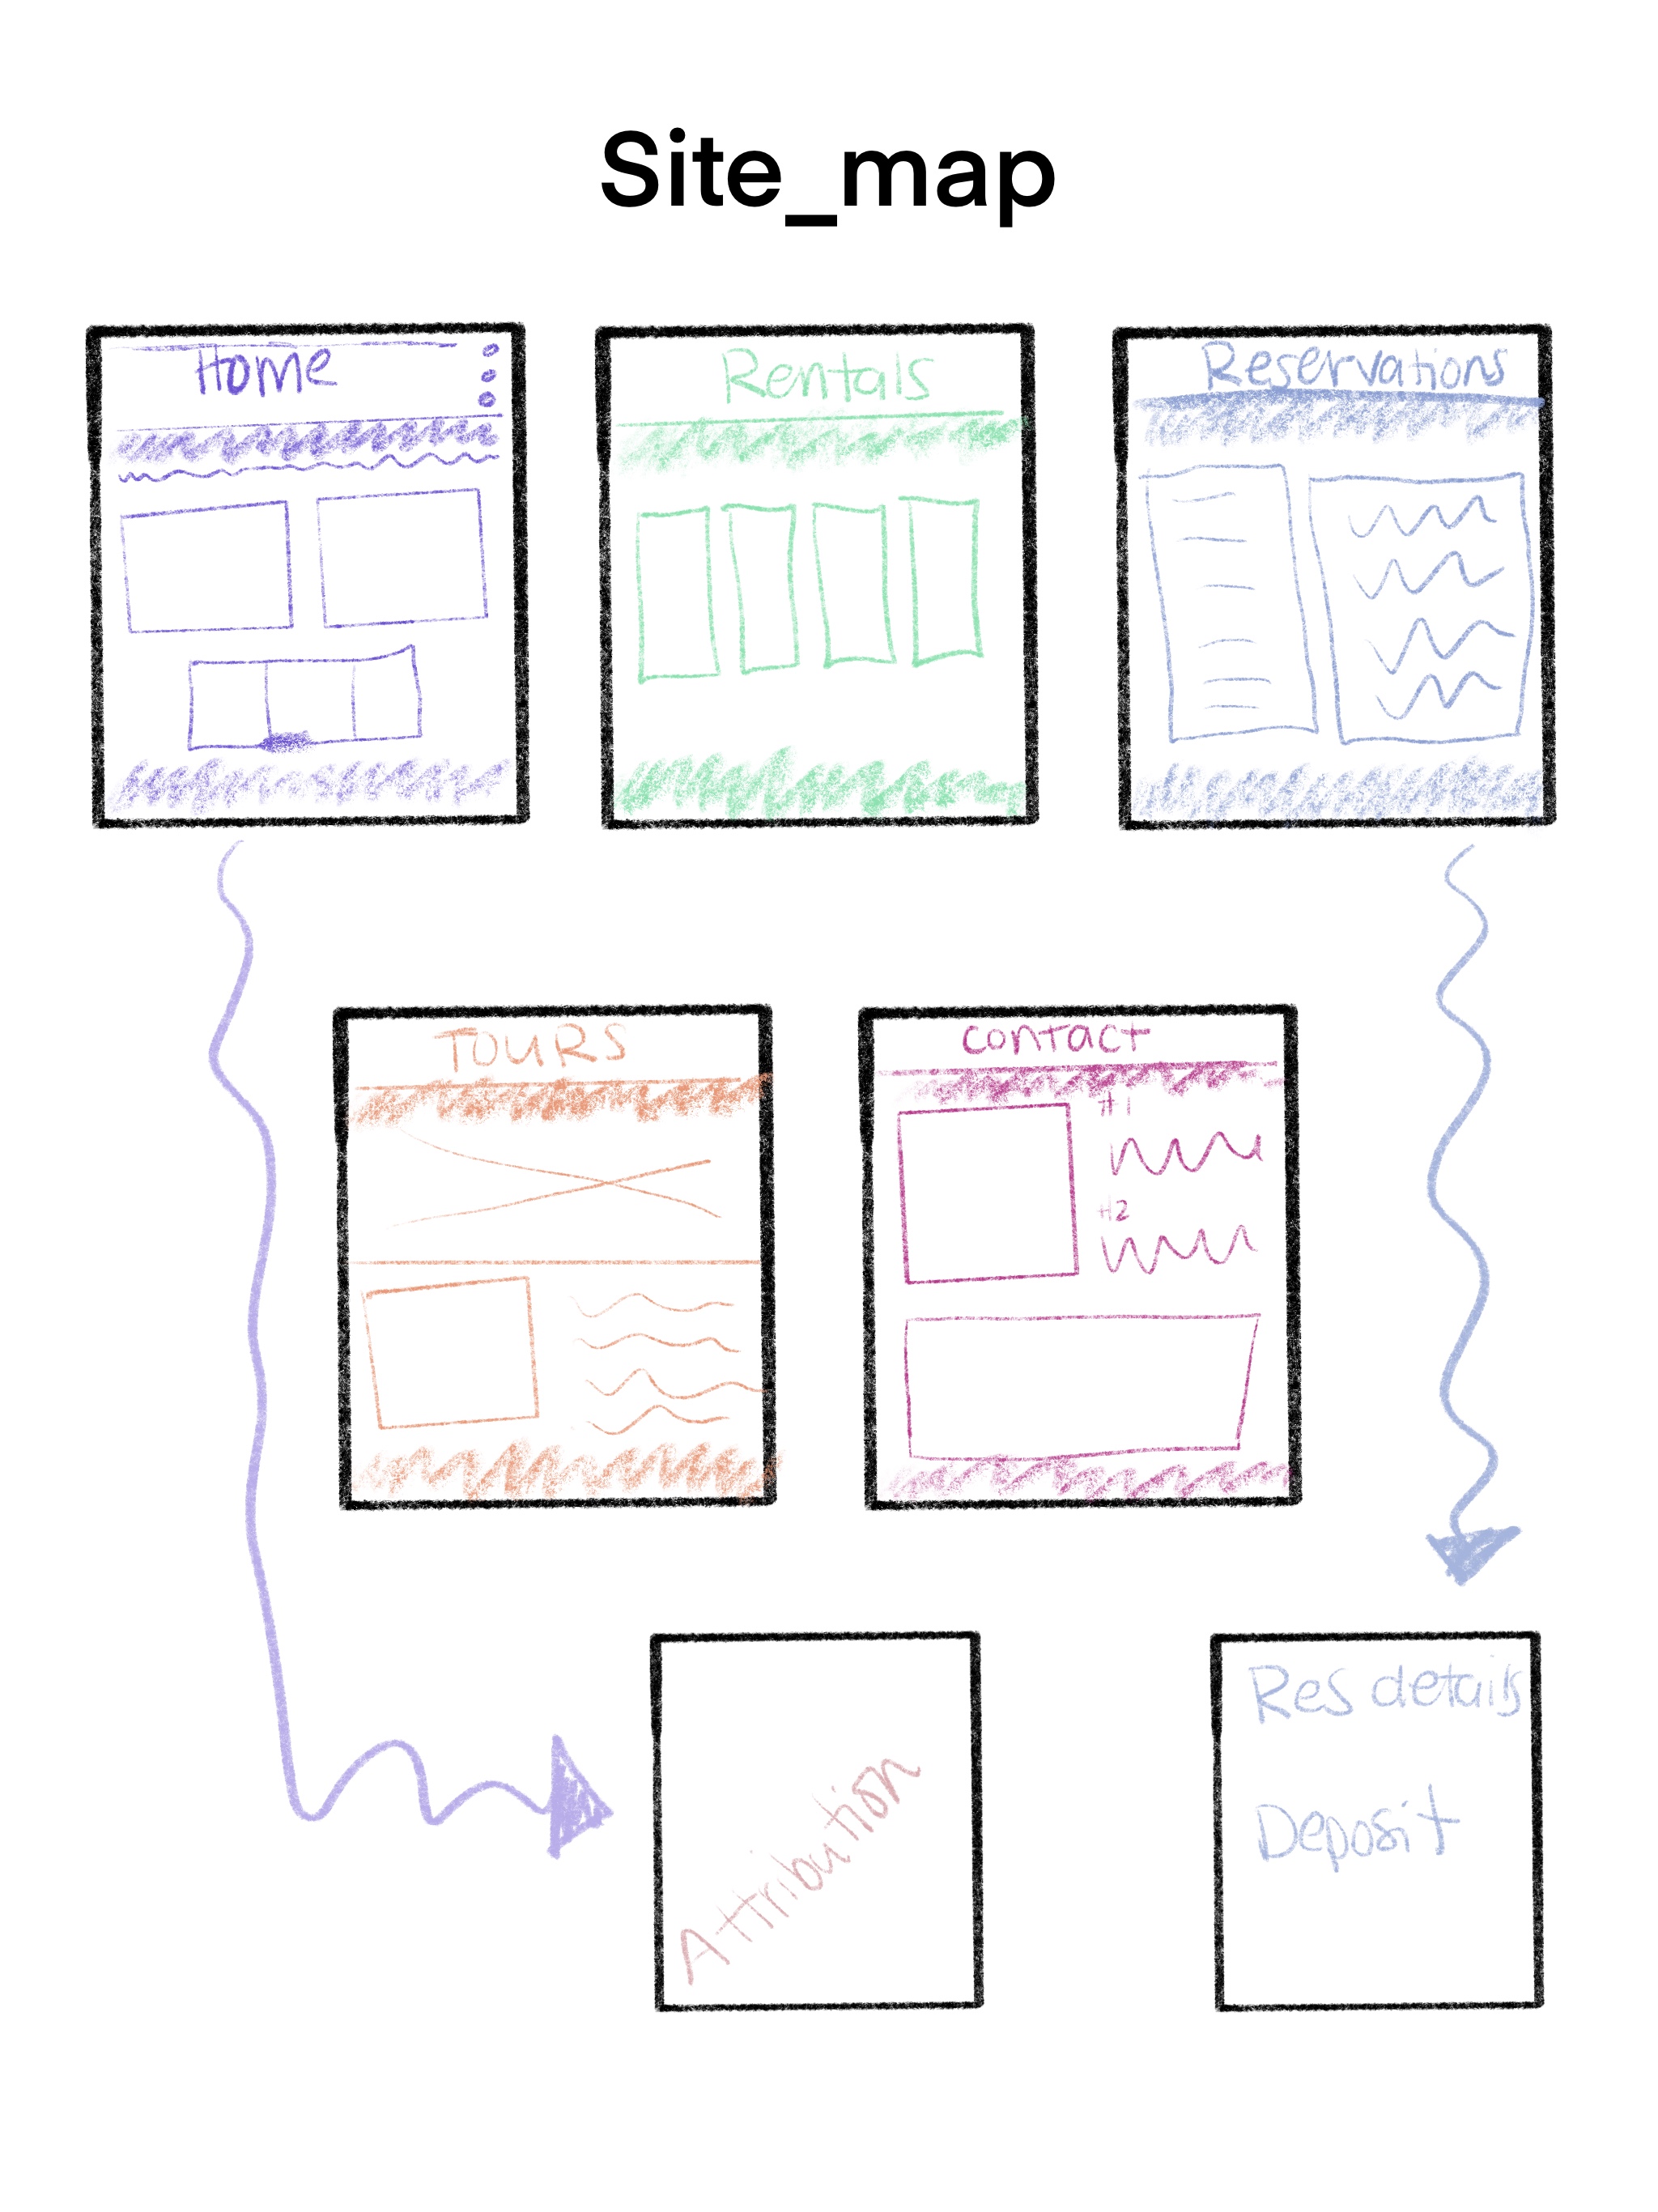 Site_map
Home
Rentals
Reservations
TOURS
contact
#1
#2
Attribution
Res details
Deposit